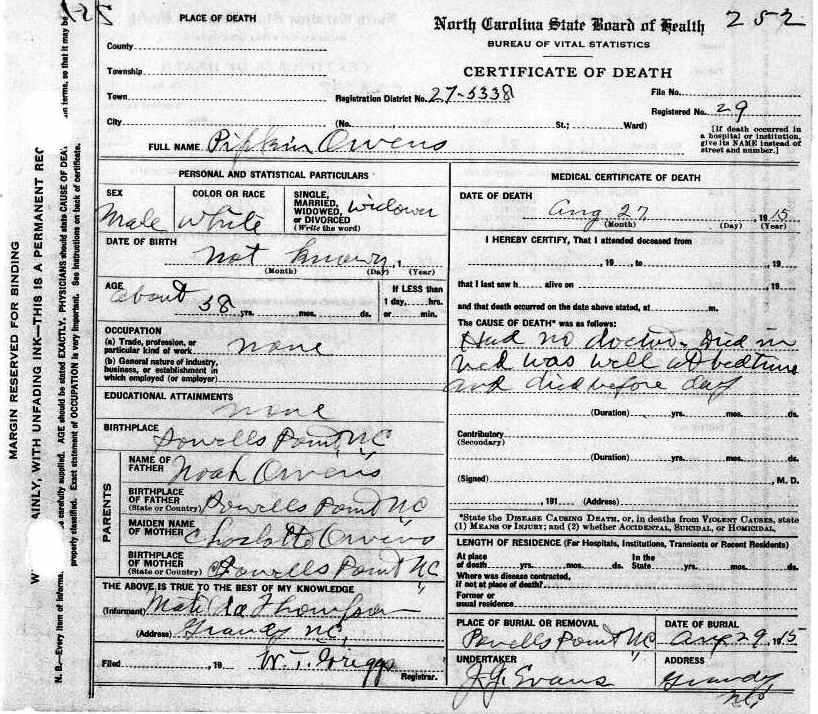 125
252
PLACE OF DEATH
North Carolina State Board of Health
BUREAU OF VITAL STATISTICS
CERTIFICATE OF DEATH
County
Township
Town
Registration District No. 27-5338
File No.
Registered No. 29
City
(No. St.; Ward)
[If death occurred in
a hospital or institution,
give its NAME instead of
street and number.]
FULL NAME Pipkin Owens
PERSONAL AND STATISTICAL PARTICULARS
SEX
Male
COLOR OR RACE
White
SINGLE,
MARRIED,
WIDOWED,
OR DIVORCED
(Write the word)
Widower
DATE OF BIRTH
not known, 1
(Month) (Day) (Year)
AGE
about 58 yrs. mos. ds.
If LESS than
1 day, hrs.
or min.
OCCUPATION
(a) Trade, profession, or
particular kind of work none
(b) General nature of industry,
business, or establishment in
which employed (or employer)
EDUCATIONAL ATTAINMENTS
none
BIRTHPLACE
Powells Point NC
PARENTS
NAME OF
FATHER
Noah Owens
BIRTHPLACE
OF FATHER
(State or Country)
Powells Point NC
MAIDEN NAME
OF MOTHER
Charlotte Owens
BIRTHPLACE
OF MOTHER
(State or Country)
Powells Point NC
THE ABOVE IS TRUE TO THE BEST OF MY KNOWLEDGE
(Informant) Matilda Thompson
(Address) Grandy NC,
Filed , 19 W. T. Griggs
Registrar.
MEDICAL CERTIFICATE OF DEATH
DATE OF DEATH
Aug 27, 1915
(Month) (Day) (Year)
I HEREBY CERTIFY, That I attended deceased from
, 19 , to , 19
that I last saw h alive on , 19
and that death occurred on the date above stated, at m.
The CAUSE OF DEATH* was as follows:
Had no doctor. Died in
bed was well at bedtime
and died before day
(Duration) yrs. mos. ds.
Contributory
(Secondary)
(Duration) yrs. mos. ds.
(Signed) , M. D.
, 191 (Address)
*State the DISEASE CAUSING DEATH, or, in deaths from VIOLENT CAUSES, state
(1) MEANS OF INJURY; and (2) whether ACCIDENTAL, SUICIDAL, or HOMICIDAL.
LENGTH OF RESIDENCE (For Hospitals, Institutions, Transients or Recent Residents)
At place
of death yrs. mos. ds.
In the
State yrs. mos. ds.
Where was disease contracted,
if not at place of death?
Former or
usual residence
PLACE OF BURIAL OR REMOVAL
Powells Point NC
DATE OF BURIAL
Aug 29 1915
UNDERTAKER
J. G. Evans
ADDRESS
Grandy
NC
MARGIN RESERVED FOR BINDING
AINLY, WITH UNFADING INK—THIS IS A PERMANENT REC
N. B.—Every item of informa carefully supplied. AGE should be stated EXACTLY. PHYSICIANS should state CAUSE OF DEA n terms, so that it may be
properly classified. Exact statement of OCCUPATION is very important. See instructions on back of certificate.